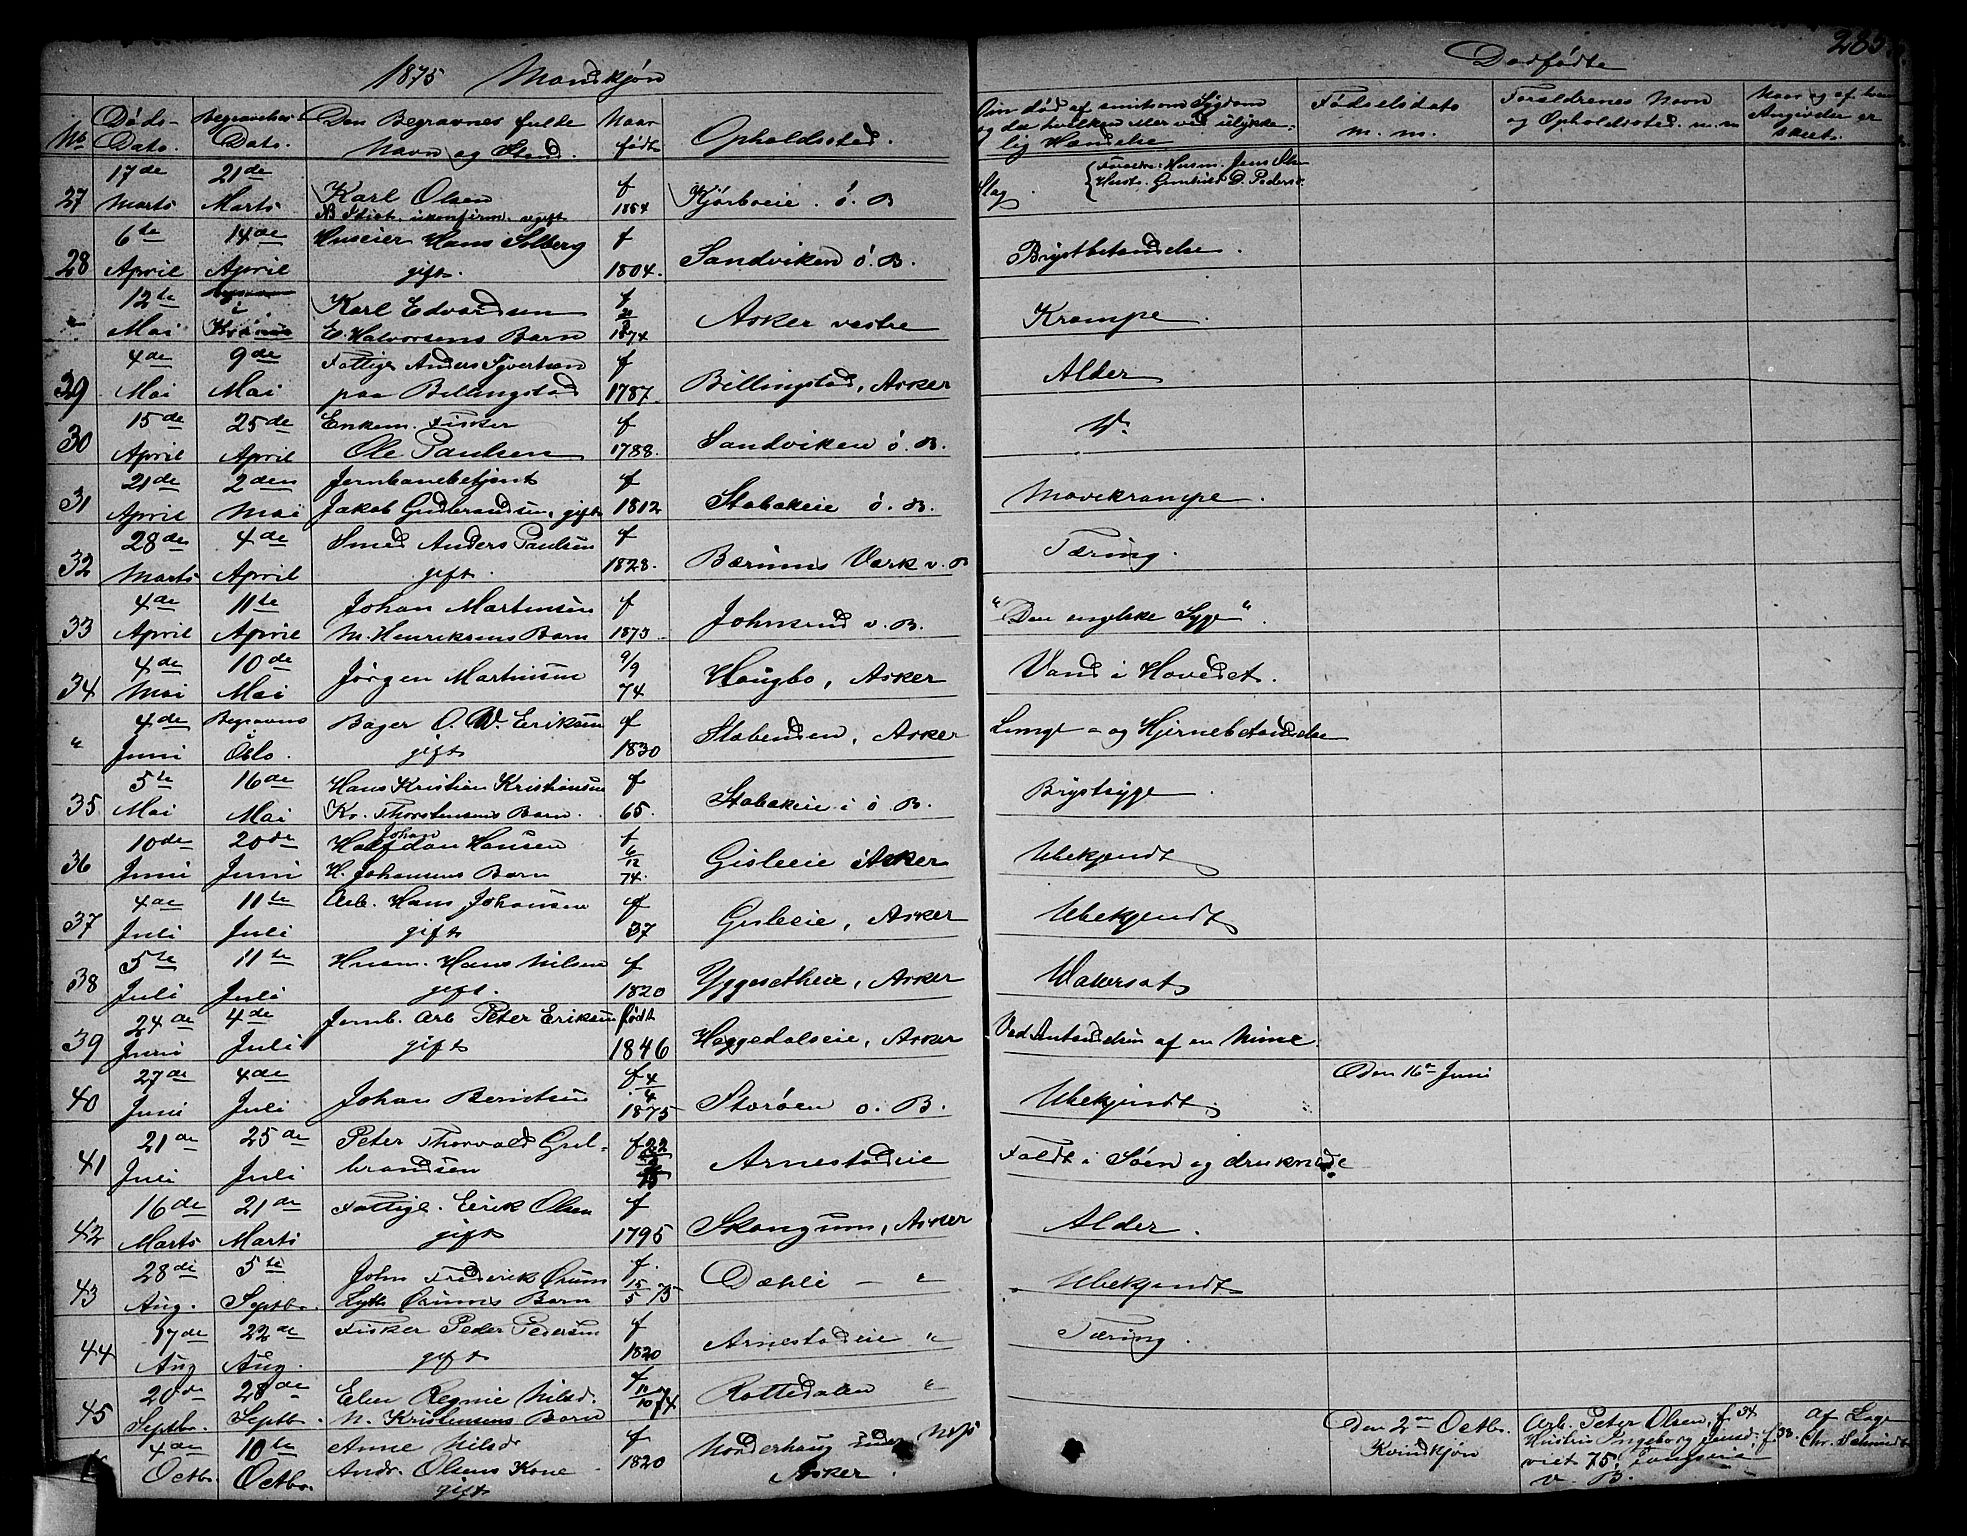 1875 Mandkjøn
Dødfødte
285
No
Døds-
Dato.
Begravelses
Dato.
Den Begravnes fulde
Navn og Stand.
Naar
født
Opholdssted.
Om død af smitsom Sygdom
og da hvilken eller ved ulykke-
lig Hændelse
Fødselsdato
m. m.
Forældrenes Navn
og Opholdssted m. m
27 17de Marts 21de Marts Karl Olsen f 1854 Kjørboeie ø. B Slag. Forældre: Husm. Jens
NB Idiot. ukonfirm. ugift
28 6te April 14de April Huseier Hans Solberg gift. f 1804. Sandviken ø. B. Brystbetændelse.
" 12te Mai i Karl Edvardsen E. Halvorsens Barn f 1874 Asker vestre Krampe.
29 4de Mai 9de Mai Fattige Anders Syvertsen paa Billingstad f 1787. Billingstad, Asker Alder
30 15de April 25de April Enkem. Fisker Ole Paulsen f 1788. Sandviken ø. B.
31 21de April 2den Mai Jernbanebetjent Jakob Gudbrandsen, gift f 1812 Stabækeie ø. B. Mavekrampe.
32 28de Marts 4de April Smed Anders Paulsen gift. f 1828. Bærums Værk v. B Tæring.
33 4de April 11te April Johan Martensen M. Henriksens Barn f 1873 Johnsrud v. B. "Den engelske Syge".
34 4de Mai 10de Mai Jørgen Martinsen 9/9 74 Haugbo, Asker Vand i Hovedet.
" 4de Juni Begravns Oslo. Bager O. W. Eriksen gift f 1830 Stabenden, Asker Lunge- og Hjernebetændelse
35 5te Mai 16de Mai Hans Kristian Kristiansen Kr. Thorstensens Barn. f 65. Stabækeie i ø B. Brystsyge.
36 10de Juni 20de Juni Halfdan Johan Hansen H. Johansens Barn f 6/12 74. Gisleeie Asker Ubekjendt
37 4de Juli 11te Juli Arb. Hans Johansen gift f 37 Gisleeie, Asker Ubekjendt
38 5te Juli 11te Juli Husm. Hans Nilsen gift. f 1820 Yggesetheie, Asker Vattersot
39 24de Juni 4de Juli Jernb. Arb Peter Eriksen gift født 1846 Heggedalseie, Asker Ved Antændelsen af en Mine.
40 27de Juni 4de Juli Johan Berntsen f 4/4 1875 Storøen ø. B. Ubekjendt. Den 16de Juni
41 21de Juli 25de Juli Peter Thorvald Gulbrandsen f 22 Arnestadeie Faldt i Søen og druknede
42 16de Marts 21de Marts Fattige. Erik Olsen gift f 1795 Skaugum, Asker Alder.
43 28de Aug. 5te Septbr. John Frederik Ørum Lyth Ørums Barn f. 15/5 75 Dæhli — " Ubekjendt
44 17de Aug 22de Aug. Fisker Peder Pedersen gift f 1820 Arnestadeie " Tæring.
45 20de Septbr. 28de Septb. Elen Regine Nilsd. N. Kristensens Barn f 11/10 74 Rottedalen "
4de Octbr. 10te Octbr. Anne Nilsdr Andr. Olsens Kone gift f 1820 Nonderhaug Asker.
Den 2den Octbr. Kvindkjøn
Arb. Peter Olsen, f 34
Hustru Ingeborg Jensd. f 38.
viet 75.
v. B.
Af Læge
Chr. Schmidt